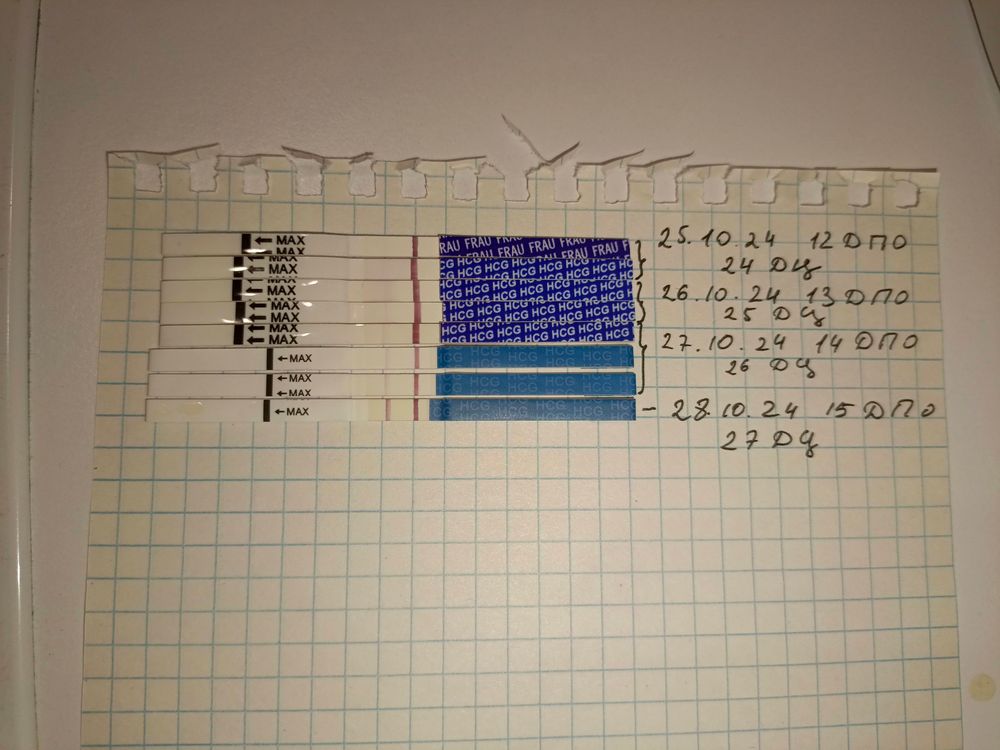 MAX
FRAU FRAU FRAU FRAU FRAU
25.10.24 12 ДПО
MAX
HCG HCG HCG HCG HCG HCG HCG
24 ДЦ
MAX
HCG HCG HCG HCG HCG HCG HCG
26.10.24 13 ДПО
MAX
HCG HCG HCG HCG HCG HCG HCG
25 ДЦ
MAX
HCG HCG HCG HCG HCG HCG HCG
27.10.24 14 ДПО
MAX
HCG HCG HCG HCG HCG
26 ДЦ
MAX
MAX
HCG HCG HCG HCG HCG
MAX
HCG HCG HCG HCG HCG
- 28.10.24 15 ДПО
27 ДЦ